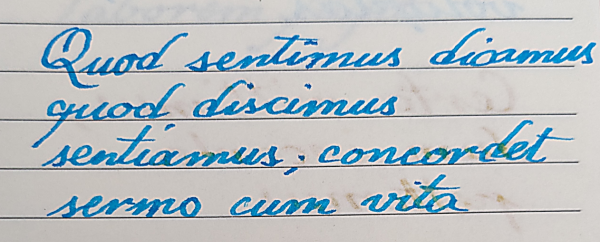 Quod sentimus dicamus
quod discimus
sentiamus; concordet
sermo cum vita